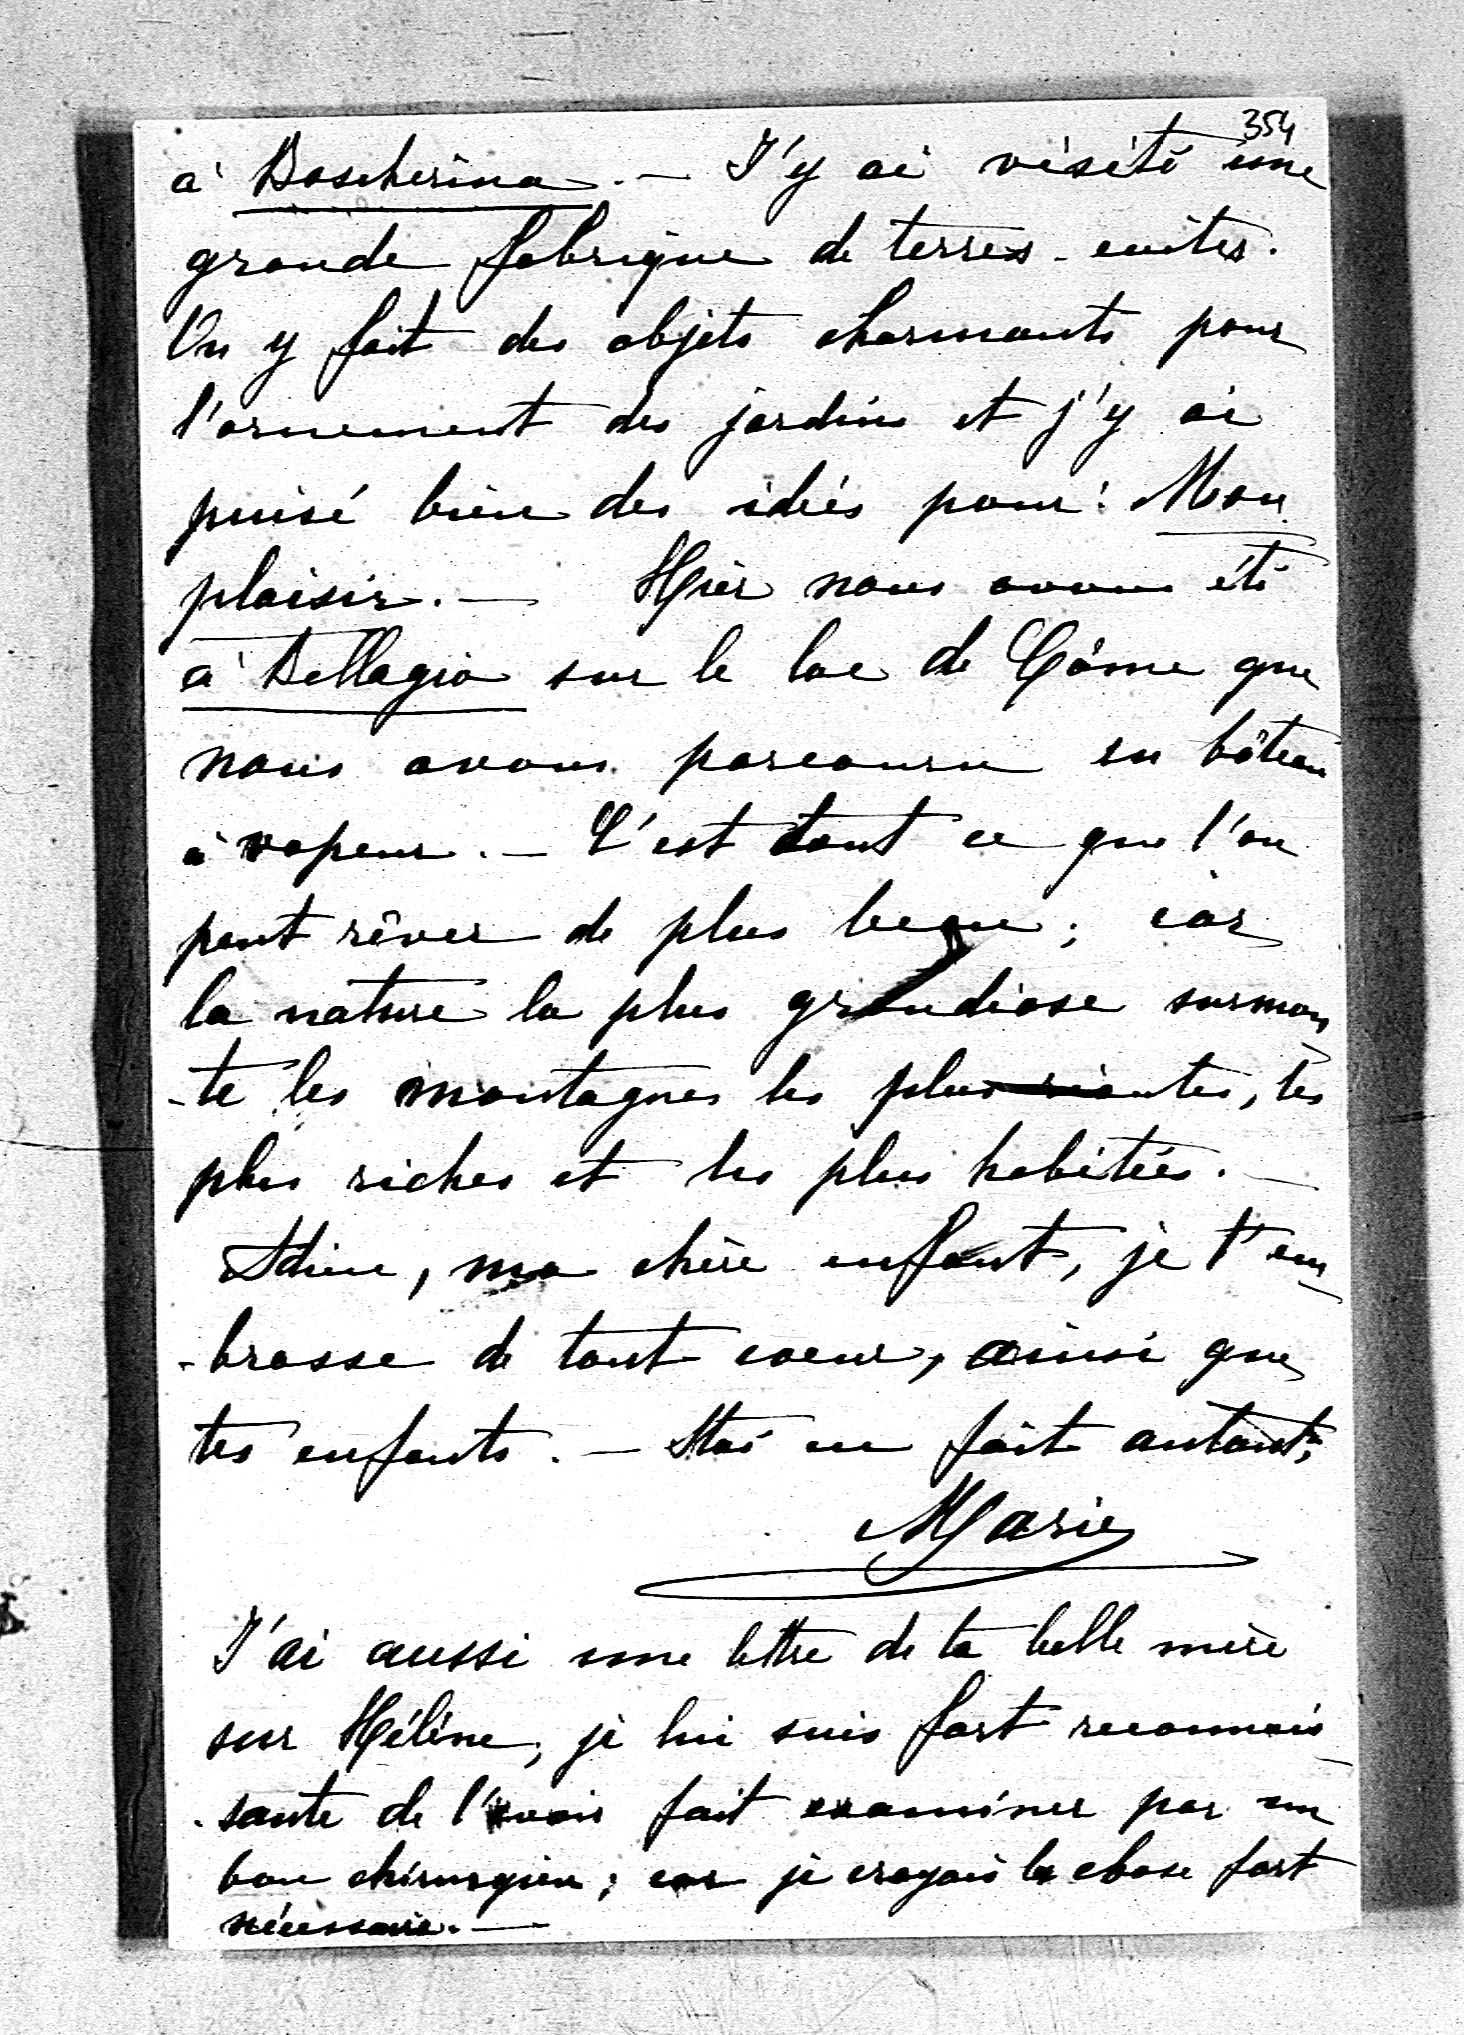 354
à Boscherina. — J'y ai visité une
grande fabrique de terres-cuites.
On y fait des objets charmants pour
l'ornement des jardins et j'y ai
puisé bien des idées pour: Mon
plaisir. — Hier nous avons été
à Bellagio sur le lac de Côme que
nous avons parcouru en bâteau
à vapeur. — C'est tout ce que l'on
peut rêver de plus beau; car
la nature la plus grandiose surmon
-te les montagnes les plus riantes, les
plus riches et les plus habitées. —
Adieu, ma chère enfant, je t'em
-brasse de tout coeur, ainsi que
tes enfants. — en fait autant;
Marie
J'ai aussi une lettre de ta belle mère
sur Hélène, je lui suis fort reconnais
-sante de l'avoir fait examiner par un
bon chirurgien; car je croyais la chose fort
nécessaire. —